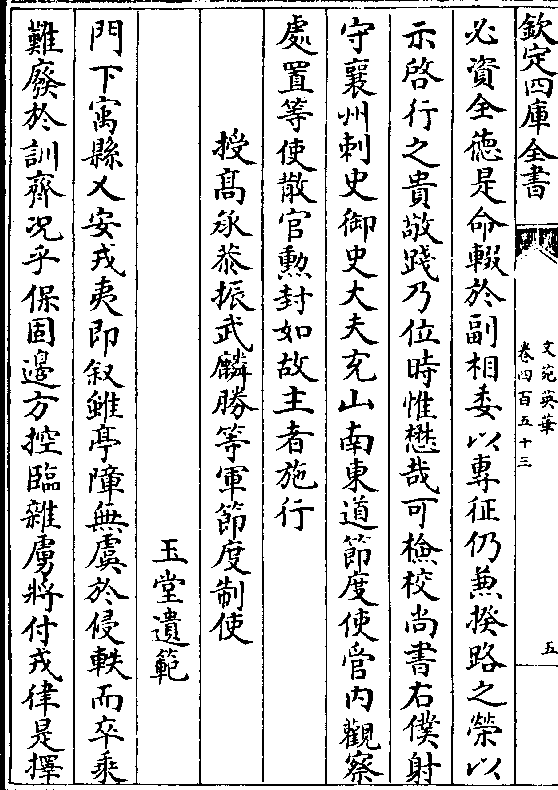 欽定四庫全書
文苑英華
卷四百五十三
五
必資全徳是命輟於副相委以專征仍兼揆路之榮以
示啓行之貴敬踐乃位時惟懋哉可檢校尚書右僕射
守襄州刺史御史大夫充山南東道節度使管内觀察
處置等使散官勲封如故主者施行
授髙承恭振武麟勝等軍節度制使
玉堂遺範
門下寓縣乂安戎夷即叙雖亭障無虞於侵軼而卒乘
難廢於訓齊况乎保固邊方控臨雜虜將付戎律是擇